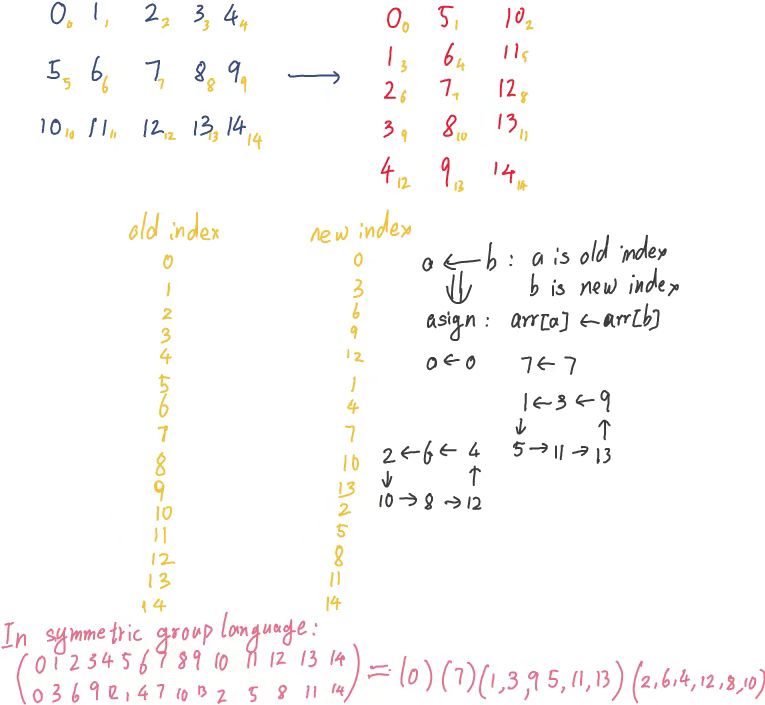 0₀ 1₁ 2₂ 3₃ 4₄
5₅ 6₆ 7₇ 8₈ 9₉ →
10₁₀ 11₁₁ 12₁₂ 13₁₃ 14₁₄
0₀ 5₁ 10₂
1₃ 6₄ 11₅
2₆ 7₇ 12₈
3₉ 8₁₀ 13₁₁
4₁₂ 9₁₃ 14₁₄
old index new index
0 0
1 3
2 6
3 9
4 12
5 1
6 4
7 7
8 10
9 13
10 2
11 5
12 8
13 11
14 14
a ← b : a is old index
b is new index
asign : arr[a] ← arr[b]
0 ← 0 7 ← 7
1 ← 3 ← 9
↓ ↑
5 → 11 → 13
2 ← 6 ← 4
↓ ↑
10 → 8 → 12
In symmetric group language:
(0 1 2 3 4 5 6 7 8 9 10 11 12 13 14
0 3 6 9 12 1 4 7 10 13 2 5 8 11 14) = (0) (7) (1,3,9 5,11,13) (2,6,4,12,8,10)